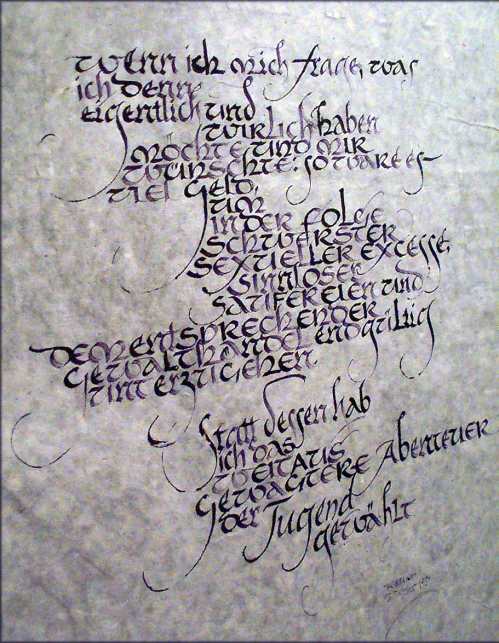 wenn ich mich frage, was
ich denn
eigentlich und
wirklich haben
möchte und mir
wünschte: so wäre es
viel Geld,
um
in der Folge
schwerster
sexueller Excesse,
sinnloser
Saufereien und
dementsprechender
Gewalthändel endgültig
unterzugehen
Statt dessen hab
ich das
weitaus
gewagtere Abenteuer
der Tugend
gewählt